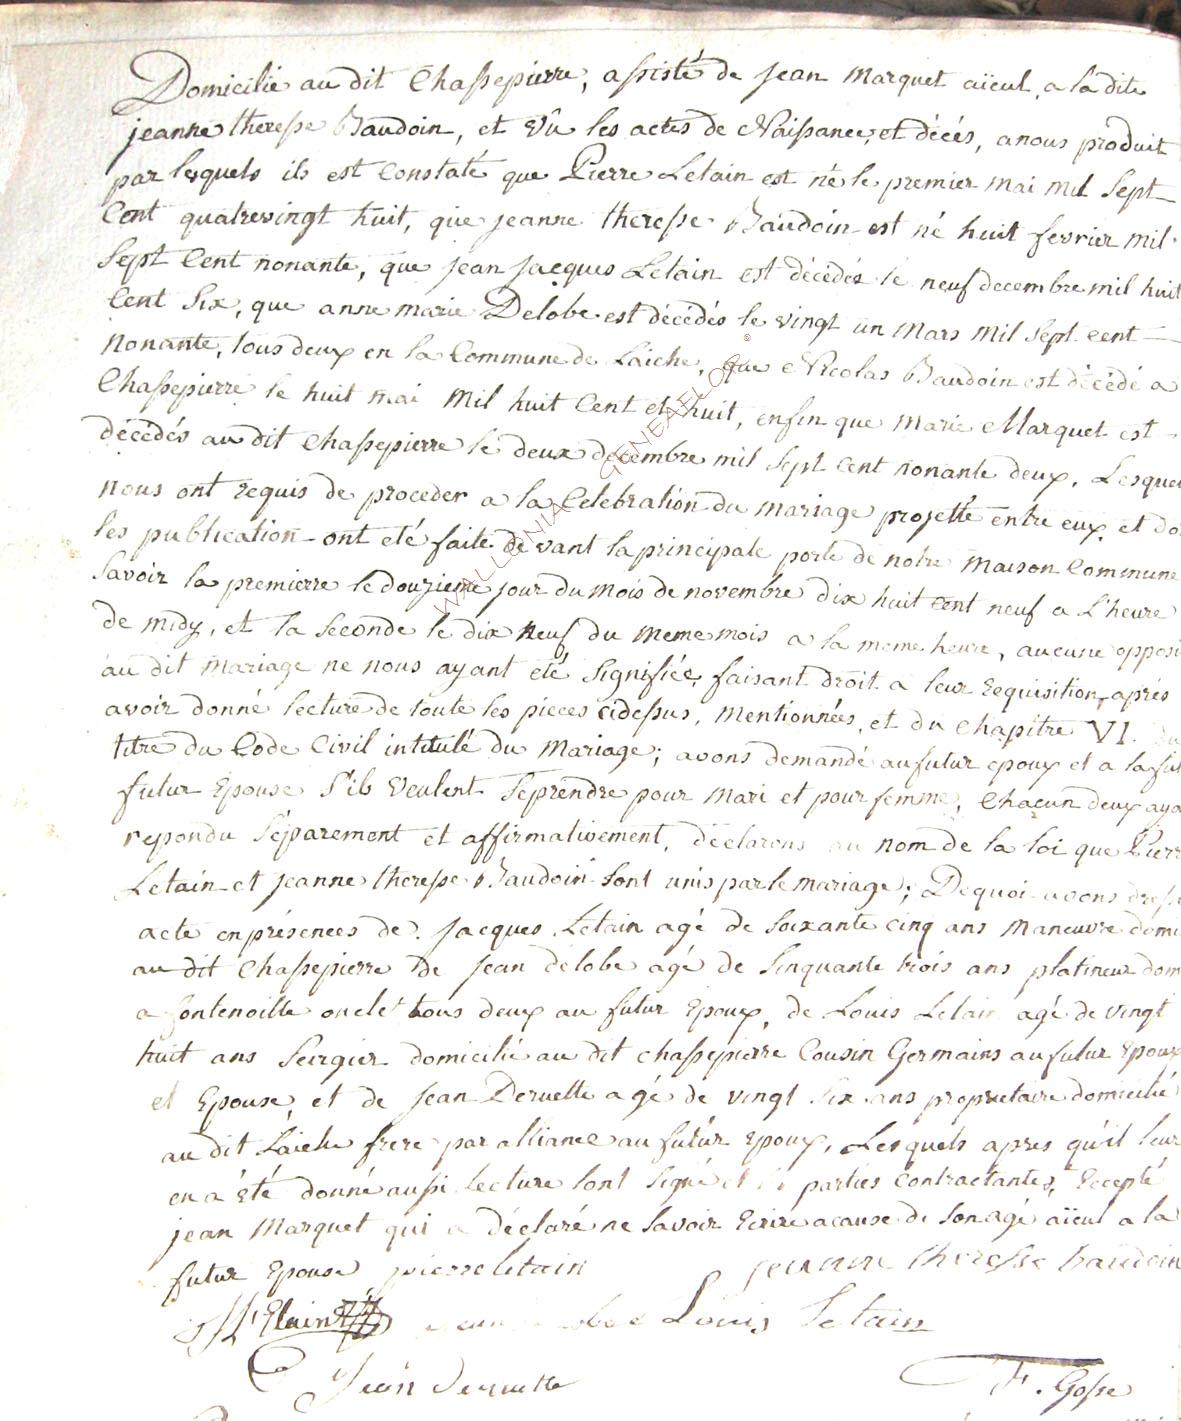 Domicilié au dit Chassepierre, assisté de jean Marquet aïeul, a la dite
jeanne theresse Baudoin, et vû les actes de Naissance, et décés, a nous produit
par lesquels ils est Constaté que Pierre Letain est né le premier Mai Mil Sept
Cent quatrevingt huit, que jeanne theresse Baudoin est né huit fevrier mil
Sept Cent nonante, que jean jacques Letain est décédés le neuf decembre mil huit
Cent Six, que anne marie Delobe est décédés le vingt un Mars Mil Sept cent
Nonante, tous deux en la Commune de Laiche, que Nicolas Baudoin est décédé a
Chassepierre le huit mai Mil huit Cent et huit, enfin que Marie Marquet est
décédés au dit Chassepierre le deux decembre mil Sept Cent nonante deux, Lesquel
nous ont requis de proceder a la Celebration du Mariage projetté entre eux, et do
les publication ont eté faite devant la principale porte de notre Maison Commune
Savoir la premierre le douzieme jour du Mois de novembre dix huit Cent neuf a L'heure
de midy, et la Seconde le dix neuf du Meme mois a la meme heure, aucune opposi
au dit Mariage ne nous ayant eté Signifiée, faisant droit a leur requisition, aprés
avoir donné lecture de toute les pieces cidessus, Mentionnées, et du Chapitre VI. du
titre du Code Civil intitulé du Mariage; avons demandé au futur epoux et a la fut
futur Epouse S'ils Veulent Seprendre pour Mari et pour femme, Chacun deux aya
repondu Séparement et affirmativement, déclarons au nom de la loi que Pierr
Letain et jeanne theresse Baudoin Sont unis par le mariage; De quoi avons dressé
acte en présences de jacques Letain agé de Soixante cinq ans Manœuvre domi
au dit Chassepierre de jean delobe agé de Sinquante trois ans platineur dom
a fontenoille oncle tous deux au futur Epoux, de Louis Letain agé de vingt
huit ans Sergier domicilié au dit Chassepierre Cousin Germains au futur epoux
et Epouse, et de jean Deruette agé de vingt Six ans proprietaire domicilié
au dit Laiche frere par alliance au futur epoux, Lesquels apres qu'il leur
en a été donné aussi lecture Sont Signé et parties Contractantes, Eccepté
jean Marquet qui a déclaré ne Savoir Ecrire a cause de Son agé aïeul a la
futur Epouse pierre letain jeanne theresse baudoin
Louis Letain
jean deruette F. Gosse
WALLONIA GENEALOGY ©